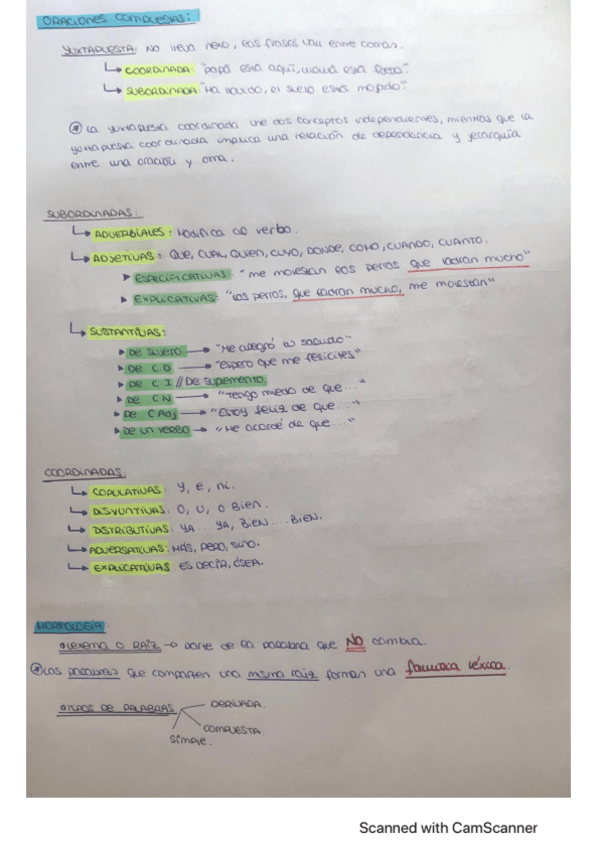 ORACIONES COMPUESTAS:
YUXTAPUESTA: NO lleva nexo, las frases van entre comas.
↳ COORDINADA: "papá está aquí, mamá está fuera".
↳ SUBORDINADA "Ha llovido, el suelo está mojado".
* La yuxtapuesta coordinada une dos conceptos independientes, mientras que la
yuxtapuesta coordinada implica una relación de dependencia y jerarquía
entre una oración y otra.
SUBORDINADAS:
↳ ADVERBIALES: Modifica al verbo.
↳ ADJETIVAS: QUE, CUAL, QUIEN, CUYO, DONDE, COMO, CUANDO, CUANTO.
▸ ESPECIFICATIVAS: "me molestan los perros que ladran mucho"
▸ EXPLICATIVAS: "Los perros, que ladran mucho, me molestan"
↳ SUSTANTIVAS:
▸ DE SUJETO → "Me alegró tu saludo"
▸ DE C.D → "espero que me felicites"
▸ DE C I // DE suplemento.
▸ DE CN → "Tengo miedo de que..."
▸ DE C Adj → "Estoy feliz de que..."
▸ DE UN VERBO → "Me acordé de que..."
COORDINADAS:
↳ COPULATIVAS: Y, e, ni.
↳ DISYUNTIVAS: O, U, O Bien.
↳ DISTRIBUTIVAS: YA... YA, BIEN.... BIEN.
↳ ADVERSATIVAS: MÁS, PERO, SINO.
↳ EXPLICATIVAS: ES DECIR, OSEA.
MORFOLOGÍA:
LEXEMA O RAÍZ → parte de la palabra que NO cambia.
* Las palabras que comparten una misma raíz forman una familia léxica.
TIPOS DE PALABRAS
DERIVADA.
COMPUESTA.
simple.
Scanned with CamScanner